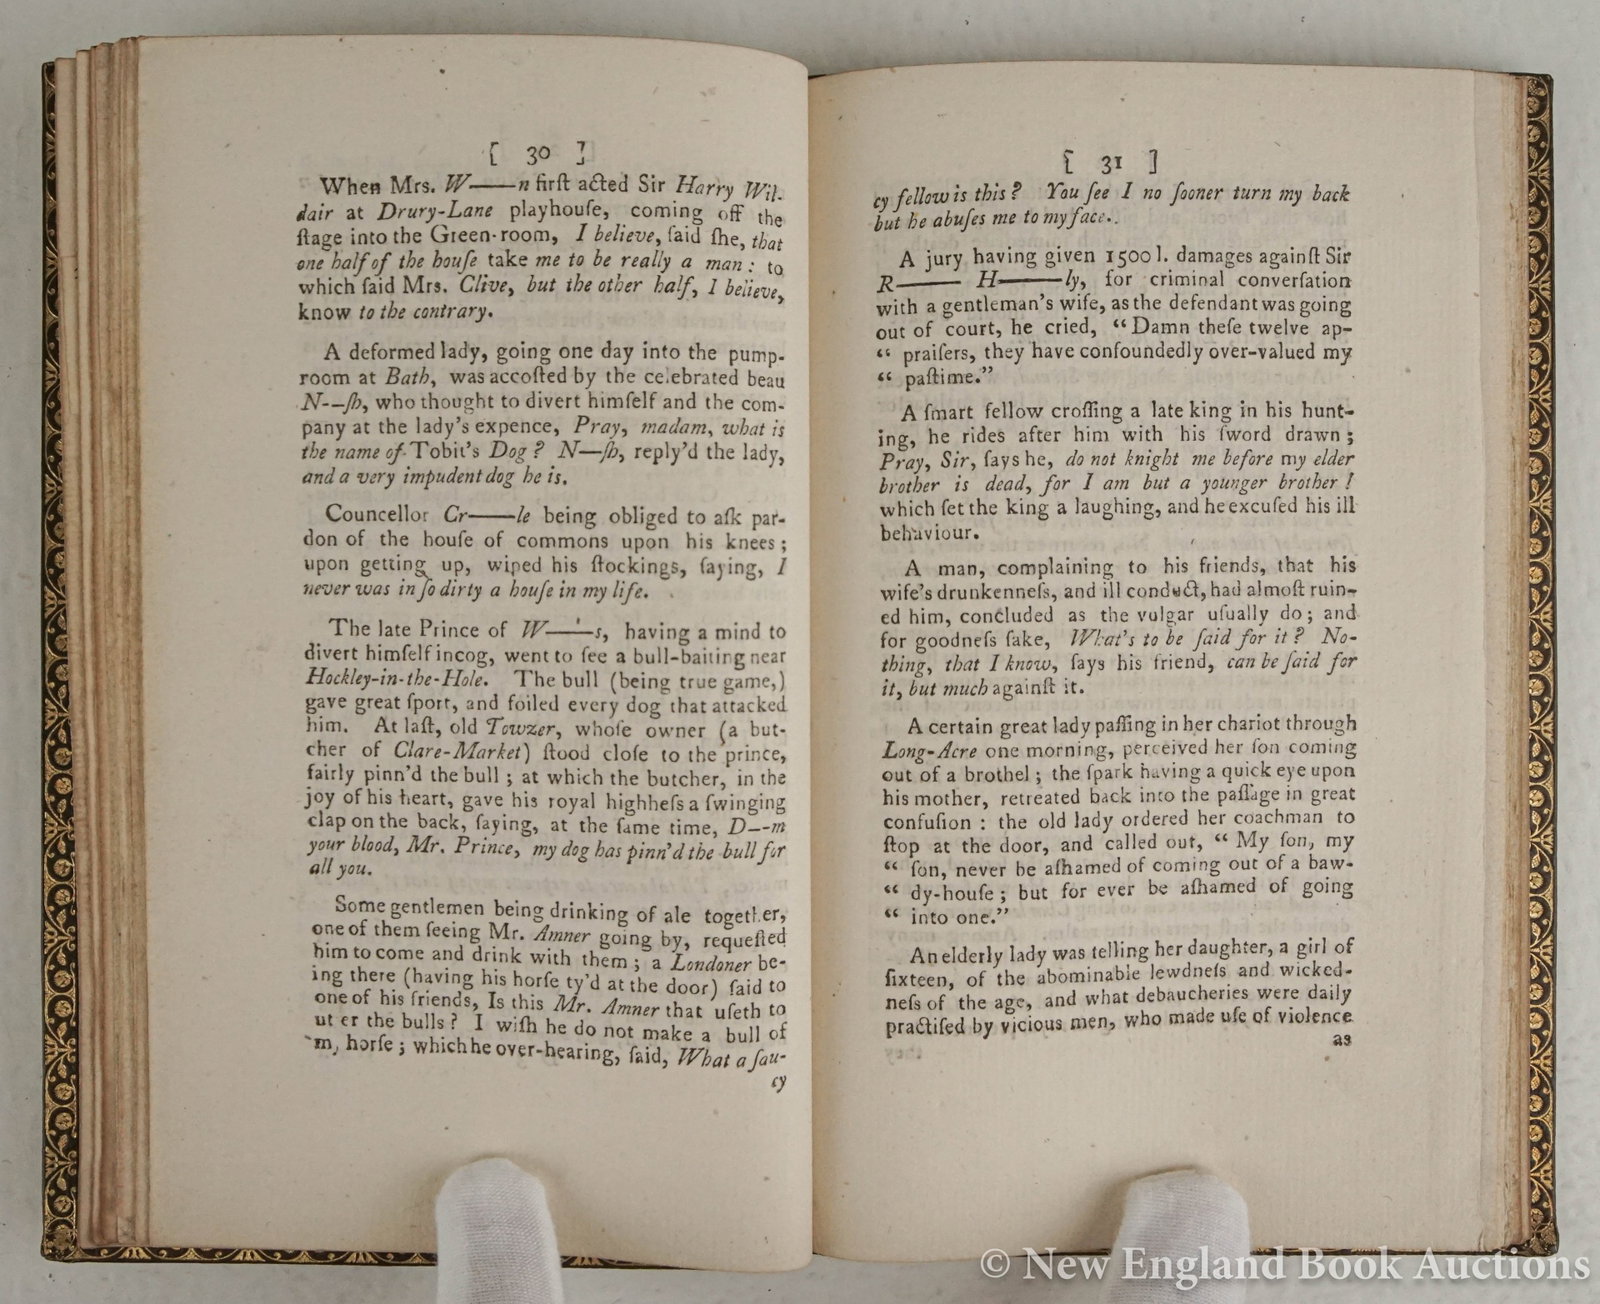 [ 30 ]
When Mrs. W——n firſt acted Sir Harry Wil-
dair at Drury-Lane playhouſe, coming off the
ſtage into the Green-room, I believe, ſaid ſhe, that
one half of the houſe take me to be really a man: to
which ſaid Mrs. Clive, but the other half, I believe,
know to the contrary.
A deformed lady, going one day into the pump-
room at Bath, was accoſted by the celebrated beau
N--ſh, who thought to divert himſelf and the com-
pany at the lady's expence, Pray, madam, what is
the name of Tobit's Dog? N—ſh, reply'd the lady,
and a very impudent dog he is.
Councellor Cr——le being obliged to aſk par-
don of the houſe of commons upon his knees;
upon getting up, wiped his ſtockings, ſaying, I
never was in ſo dirty a houſe in my life.
The late Prince of W——s, having a mind to
divert himſelf incog, went to ſee a bull-baiting near
Hockley-in-the-Hole. The bull (being true game,)
gave great ſport, and foiled every dog that attacked
him. At laſt, old Towzer, whoſe owner (a but-
cher of Clare-Market) ſtood cloſe to the prince,
fairly pinn'd the bull; at which the butcher, in the
joy of his heart, gave his royal highheſs a ſwinging
clap on the back, ſaying, at the ſame time, D--m
your blood, Mr. Prince, my dog has pinn'd the bull for
all you.
Some gentlemen being drinking of ale together,
one of them ſeeing Mr. Amner going by, requeſted
him to come and drink with them; a Londoner be-
ing there (having his horſe ty'd at the door) ſaid to
one of his friends, Is this Mr. Amner that uſeth to
utter the bulls? I wiſh he do not make a bull of
my horſe; which he over-hearing, ſaid, What a ſau-
cy
[ 31 ]
cy fellow is this? You ſee I no ſooner turn my back
but he abuſes me to my face.
A jury having given 1500 l. damages againſt Sir
R—— H——ly, for criminal converſation
with a gentleman's wife, as the defendant was going
out of court, he cried, “Damn theſe twelve ap-
“ praiſers, they have confoundedly over-valued my
“ paſtime.”
A ſmart fellow croſſing a late king in his hunt-
ing, he rides after him with his ſword drawn;
Pray, Sir, ſays he, do not knight me before my elder
brother is dead, for I am but a younger brother!
which ſet the king a laughing, and he excuſed his ill
behaviour.
A man, complaining to his friends, that his
wife's drunkenneſs, and ill conduct, had almoſt ruin-
ed him, concluded as the vulgar uſually do; and
for goodneſs ſake, What's to be ſaid for it? No-
thing, that I know, ſays his friend, can be ſaid for
it, but much againſt it.
A certain great lady paſſing in her chariot through
Long-Acre one morning, perceived her ſon coming
out of a brothel; the ſpark having a quick eye upon
his mother, retreated back into the paſſage in great
confuſion: the old lady ordered her coachman to
ſtop at the door, and called out, “ My ſon, my
“ ſon, never be aſhamed of coming out of a baw-
“ dy-houſe; but for ever be aſhamed of going
“ into one.”
An elderly lady was telling her daughter, a girl of
ſixteen, of the abominable lewdneſs and wicked-
neſs of the age, and what debaucheries were daily
practiſed by vicious men, who made uſe of violence
as
© New England Book Auctions